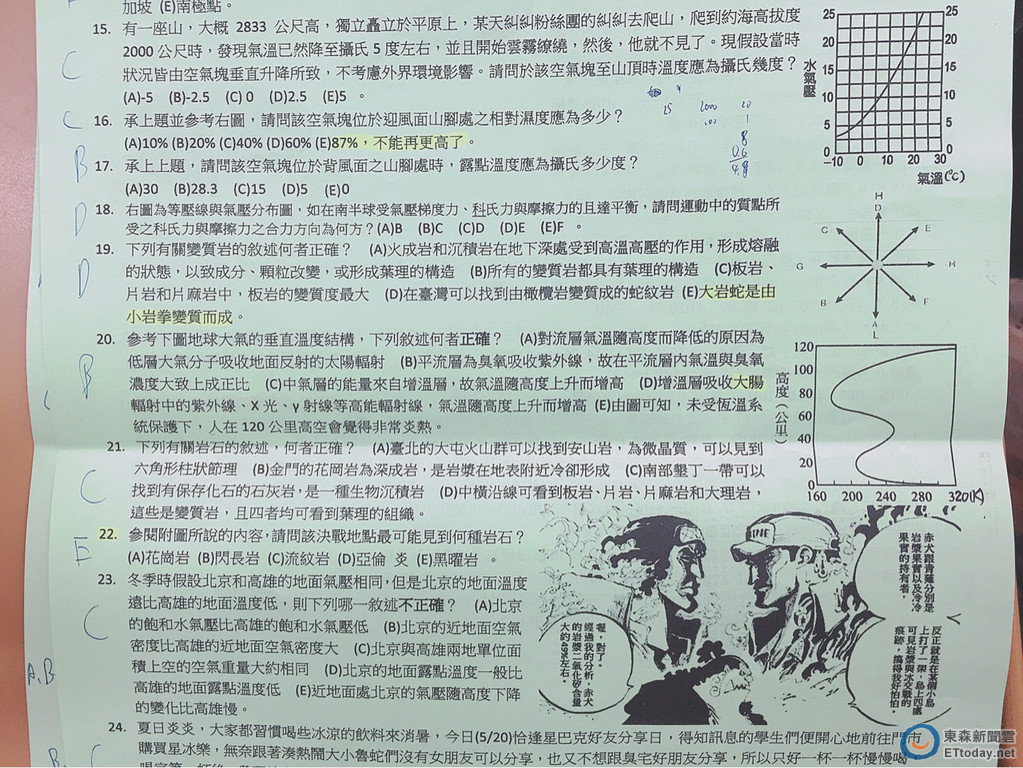 加坡 (E)南極點。
15. 有一座山，大概 2833 公尺高，獨立矗立於平原上，某天糾糾粉絲團的糾糾去爬山，爬到約海高拔度
2000 公尺時，發現氣溫已然降至攝氏 5 度左右，並且開始雲霧繚繞，然後，他就不見了。現假設當時
狀況皆由空氣塊垂直升降所致，不考慮外界環境影響。請問於該空氣塊至山頂時溫度應為攝氏幾度？
(A)-5 (B)-2.5 (C) 0 (D)2.5 (E)5 。
16. 承上題並參考右圖，請問該空氣塊位於迎風面山腳處之相對濕度應為多少？
(A)10% (B)20% (C)40% (D)60% (E)87%，不能再更高了。
17. 承上上題，請問該空氣塊位於背風面之山腳處時，露點溫度應為攝氏多少度？
(A)30 (B)28.3 (C)15 (D)5 (E)0
18. 右圖為等壓線與氣壓分布圖，如在南半球受氣壓梯度力、科氏力與摩擦力的且達平衡，請問運動中的質點所
受之科氏力與摩擦力之合力方向為何方？(A)B (B)C (C)D (D)E (E)F 。
19. 下列有關變質岩的敘述何者正確？ (A)火成岩和沉積岩在地下深處受到高溫高壓的作用，形成熔融
的狀態，以致成分、顆粒改變，或形成葉理的構造 (B)所有的變質岩都具有葉理的構造 (C)板岩、
片岩和片麻岩中，板岩的變質度最大 (D)在臺灣可以找到由橄欖岩變質成的蛇紋岩 (E)大岩蛇是由
小岩拳變質而成。
20. 參考下圖地球大氣的垂直溫度結構，下列敘述何者正確？ (A)對流層氣溫隨高度而降低的原因為
低層大氣分子吸收地面反射的太陽輻射 (B)平流層為臭氧吸收紫外線，故在平流層內氣溫與臭氧
濃度大致上成正比 (C)中氣層的能量來自增溫層，故氣溫隨高度上升而增高 (D)增溫層吸收大腸
輻射中的紫外線、X 光、γ 射線等高能輻射線，氣溫隨高度上升而增高 (E)由圖可知，未受恆溫系
統保護下，人在 120 公里高空會覺得非常炎熱。
21. 下列有關岩石的敘述，何者正確？ (A)臺北的大屯火山群可以找到安山岩，為微晶質，可以見到
六角形柱狀節理 (B)金門的花岡岩為深成岩，是岩漿在地表附近冷卻形成 (C)南部墾丁一帶可以
找到有保存化石的石灰岩，是一種生物沉積岩 (D)中橫沿線可看到板岩、片岩、片麻岩和大理岩，
這些是變質岩，且四者均可看到葉理的組織。
22. 參閱附圖所說的內容，請問該決戰地點最可能見到何種岩石？
(A)花崗岩 (B)閃長岩 (C)流紋岩 (D)亞倫 炎 (E)黑曜岩 。
23. 冬季時假設北京和高雄的地面氣壓相同，但是北京的地面溫度
遠比高雄的地面溫度低，則下列哪一敘述不正確？ (A)北京
的飽和水氣壓比高雄的飽和水氣壓低 (B)北京的近地面空氣
密度比高雄的近地面空氣密度大 (C)北京與高雄兩地單位面
積上空的空氣重量大約相同 (D)北京的地面露點溫度一般比
高雄的地面露點溫度低 (E)近地面處北京的氣壓隨高度下降
的變化比高雄慢。
24. 夏日炎炎，大家都習慣喝些冰涼的飲料來消暑，今日(5/20)恰逢星巴克好友分享日，得知訊息的學生們便開心地前往門市
購買星冰樂，無奈跟著湊熱鬧大小魯蛇們沒有女朋友可以分享，也又不想跟臭宅好朋友分享，所以只好一杯一杯慢慢喝，
C
C
B
D
D
B
C
E
C
A.B
B.
C
25 25
20 20
15 15
10 10
5 5
0 0
水氣壓
-10 0 10 20 30
氣溫(°C)
H
D
C E
G H
B F
A
L
120
100
80
60
40
20
0
高度（公里）
160 200 240 280 320(K)
赤犬跟青雉分別是
岩漿果實以及冷冷
果實的持有者。
反正就是在某個小島
上打了一架，島上四處
可見岩漿與冰交戰的
痕跡，搞得我好怕怕。
喔，對了。
經過我的分析，赤犬
的岩漿二氧化矽含量
大約49%左右。
東森新聞雲
ETtoday.net